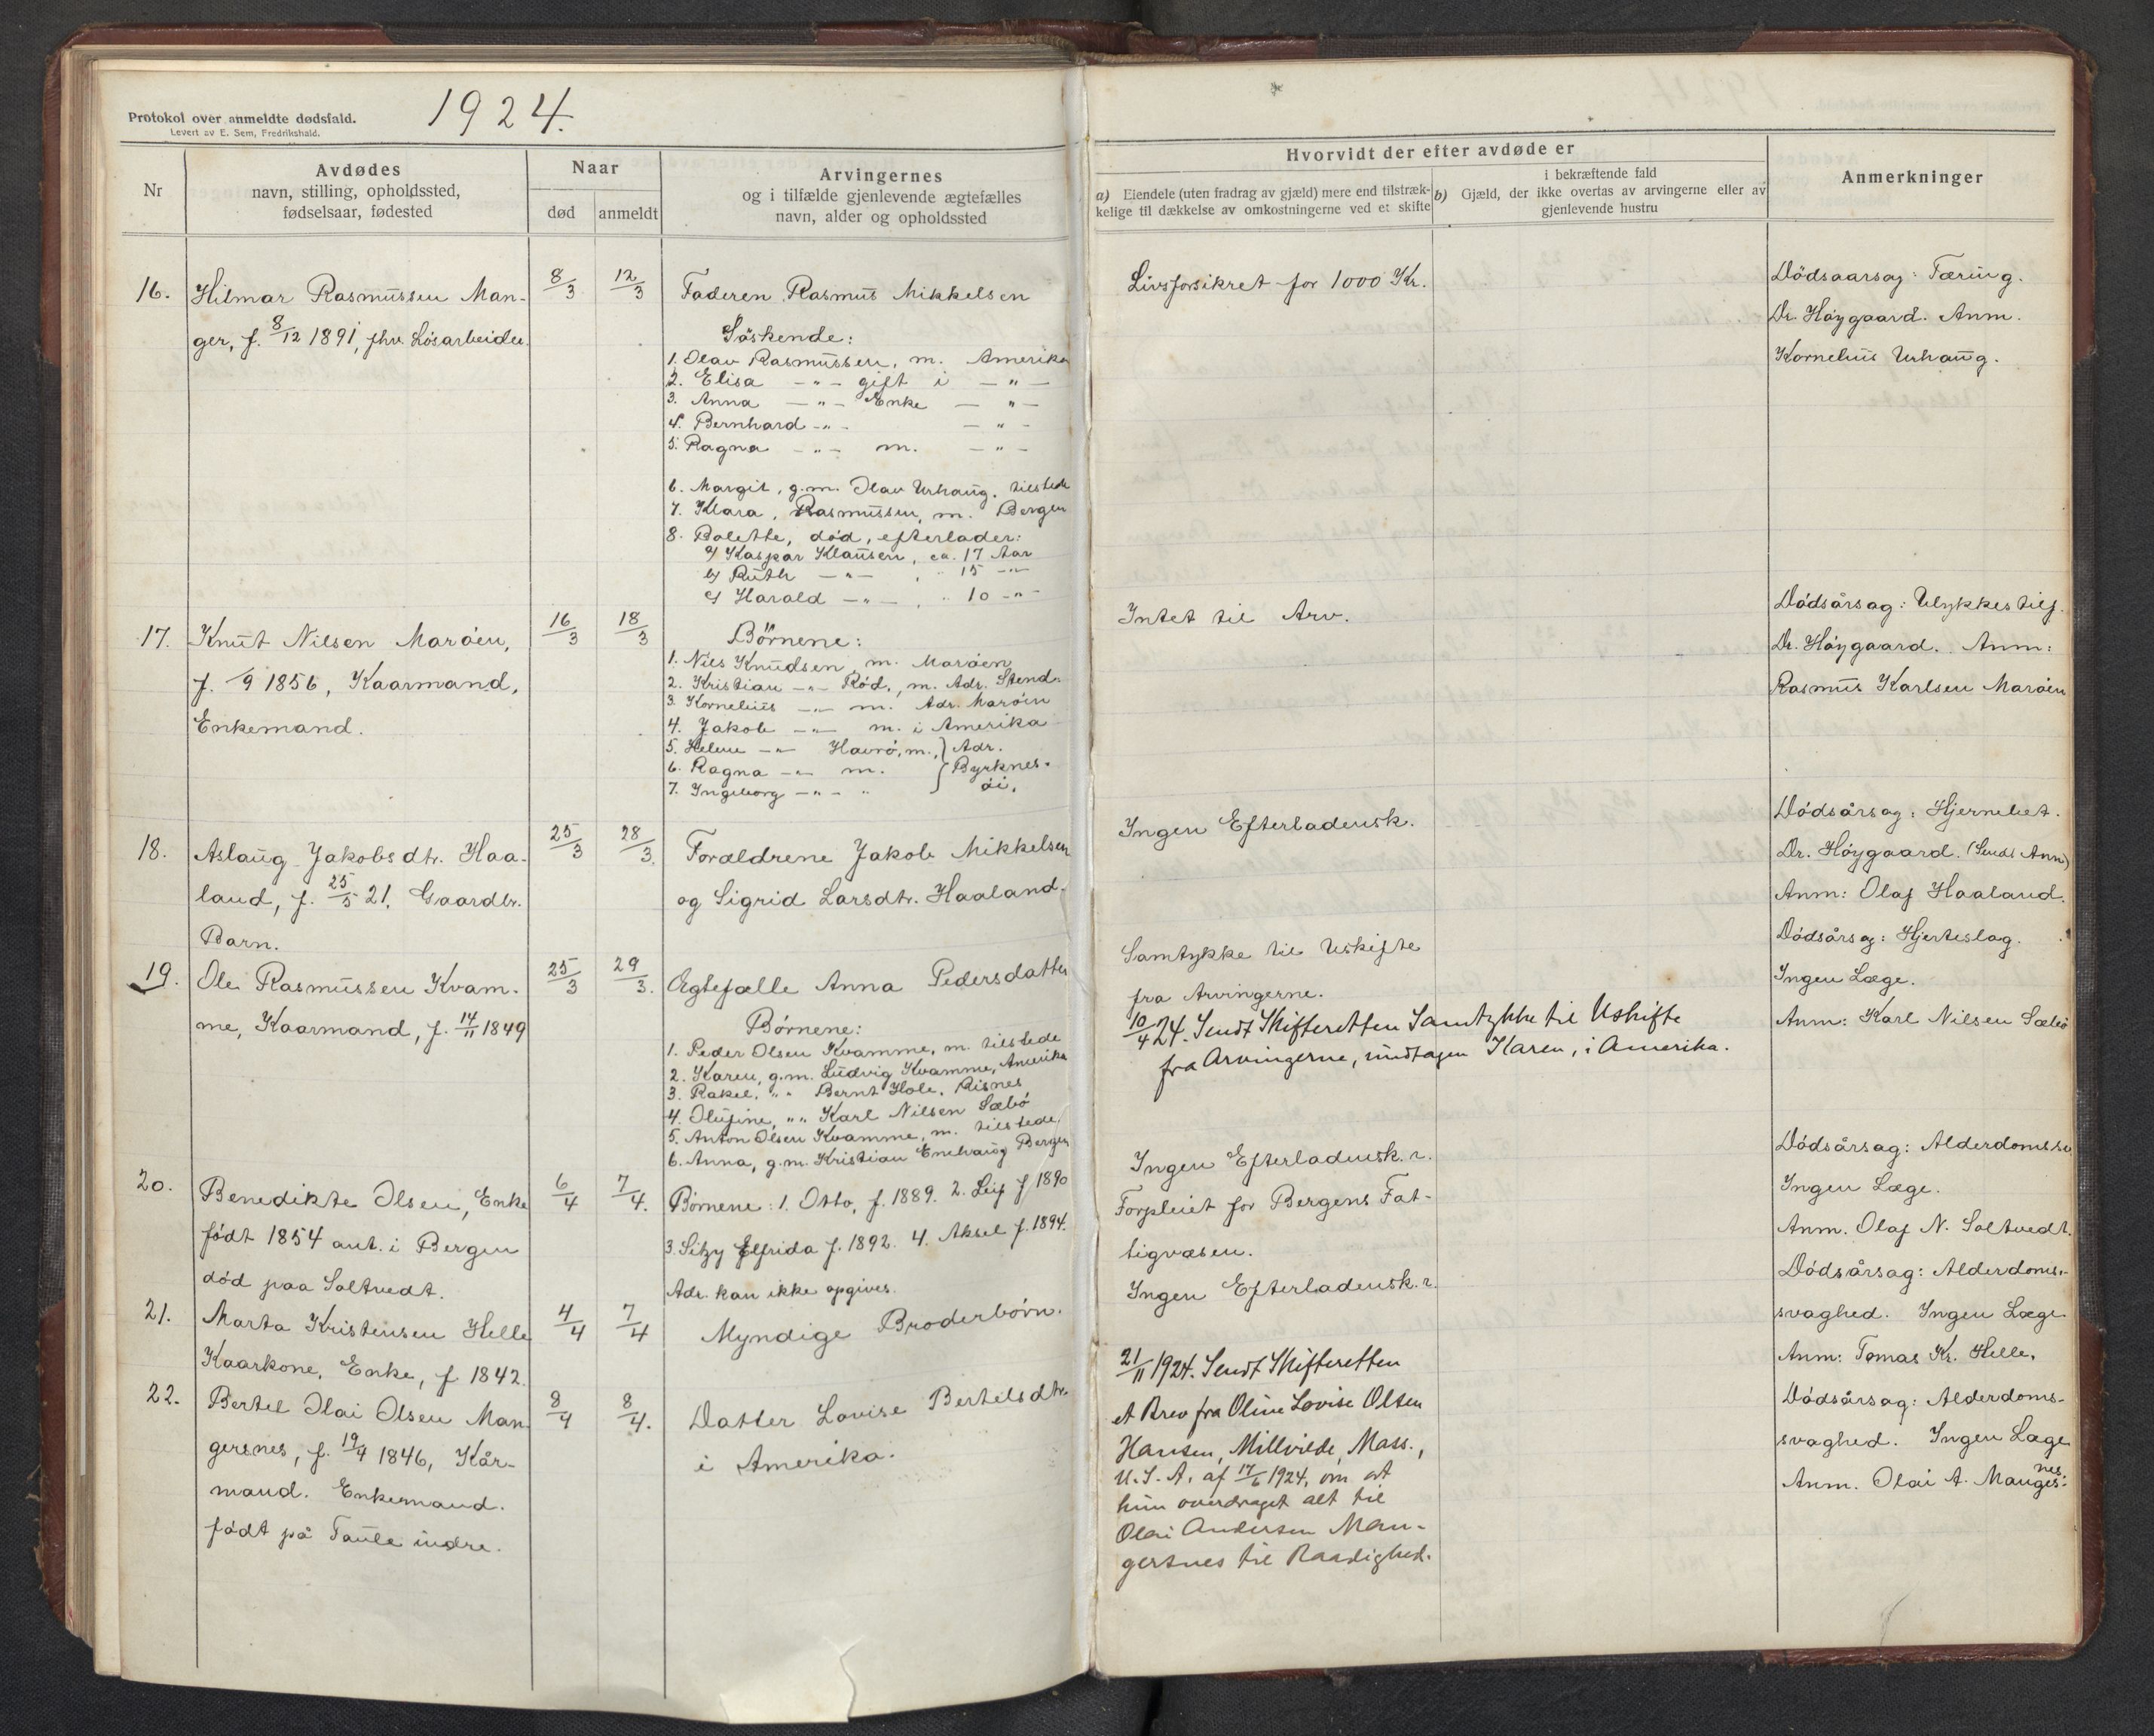 Protokol over anmeldte dødsfald.
Levert av E. Sem, Fredrikshald.
1924.
Nr
Avdødes
navn, stilling, opholdssted,
fødselsaar, fødested
Naar
død
anmeldt
Arvingernes
og i tilfælde gjenlevende ægtefælles
navn, alder og opholdssted
Hvorvidt der efter avdøde er
a) Eiendele (uten fradrag av gjæld) mere end tilstræk-
kelige til dækkelse av omkostningerne ved et skifte
i bekræftende fald
b) Gjæld, der ikke overtas av arvingerne eller av
gjenlevende hustru
Anmerkninger
16.
Hilmar Rasmussen Man-
ger, f. 8/12 1891, fhv. Løsarbeider.
8/3
12/3
Faderen Rasmus Mikkelsen
Søskende:
1. Olav Rasmussen, m. Amerika
2. Elisa —"— gift i —"—
3. Anna —"— Enke —"—
4. Bernhard —"— —"—
5. Ragna —"— m. —"—
6. Margit, g.m. Olav Urhaug. tilstede
7. Klara, Rasmussen, m. Bergen
8. Bolette, død, efterlader:
a/ Kaspar Klausen, ca. 17 Aar
b/ Ruth —"— , " 15 —"—
c/ Harald —"— , " 10 —"—
Livsforsikret for 1000 Kr.
Dødsaarsag: Tæring.
Dr. Høygaard. Anm.
Kornelius Urhaug.
17.
Knut Nilsen Marøen,
f. /9 1856, Kaarmand,
Enkemand.
16/3
18/3
Børnene:
1. Nils Knudsen, m. Marøen
2. Kristian —"— Rød., m. Adr. Stend.
3. Kornelius —"— m. Adr. Marøen
4. Jakob —"— m. i Amerika
5. Helene —"— Havrø, m., } Adr.
6. Ragna —"— m. } Byrknes-
7. Ingeborg —"— " } øi.
Intet til Arv.
Dødsårsag: Ulykkestilf.
Dr. Høygaard. Anm:
Rasmus Karlsen Marøen
18.
Aslaug Jakobsdtr. Haa-
land, f. 25/5 21. Gaardbr.
Barn.
25/3
28/3.
Forældrene Jakob Mikkelsen
og Sigrid Larsdtr. Haaland.
Ingen Efterladensk.
Dødsårsag: Hjernebet.
Dr. Høygaard. (Sendt Anm)
Anm: Olaf Haaland.
19.
Ole Rasmussen Kvam-
me, Kaarmand, f. 14/11 1849
25/3
29/3.
Ægtefælle Anna Pedersdatter
Børnene:
1. Peder Olsen Kvamme, m. tilstede
2. Karen, g.m. Ludvig Kvamme, Amerika
3. Rakel, " " Bernt Hole, Risnes
4. Olufine, " " Karl Nilsen Sæbø
5. Anton Olsen Kvamme, m. tilstede
6. Anna, g.m. Kristian Enehaug Bergen
Samtykke til Uskifte
fra Arvingerne.
10/4 24. Sendt Skifteretten Samtykke til Uskifte
fra Arvingerne, undtagen Karen, i Amerika.
Dødsårsag: Hjerteslag.
Ingen Læge.
Anm: Karl Nilsen Sæbø
20.
Benedikte Olsen, Enke
født 1854 ant. i Bergen
død paa Soltvedt.
6/4
7/4.
Børnene: 1. Otto, f. 1889. 2. Leif f 1890
3. Sitzy Elfrida f. 1892. 4. Aksel f. 1894.
Adr. kan ikke opgives.
Ingen Efterladensk.r.
Forpleiet for Bergens Fat-
tigvæsen.
Dødsårsag: Alderdomssv
Ingen Læge.
Anm. Olaf N. Soltvedt.
21.
Marta Kristensen Helle
Kaarkone, Enke, f 1842.
4/4
7/4
Myndige Broderbørn.
Ingen Efterladensk.r.
Dødsårsag: Alderdoms-
svaghed. Ingen Læge
Anm: Tomas Kr. Helle.
22.
Bertel Olai Olsen Man-
gersnes, f. 19/4 1846, Kår-
mand. Enkemand.
født på Taule indre.
8/4
8/4.
Datter Lovise Bertelsdtr.
i Amerika.
21/11 1924. Sendt Skifteretten
et Brev fra Oline Lovise Olsen
Hansen, Millvilde, Mass.,
U.S.A. af 17/6 1924, om at
hun overdraget alt til
Olai Andersen Man-
gersnes til Raadighed.
Dødsårsag: Alderdoms-
svaghed. Ingen Læge
Anm. Olai A. Mangersnes.